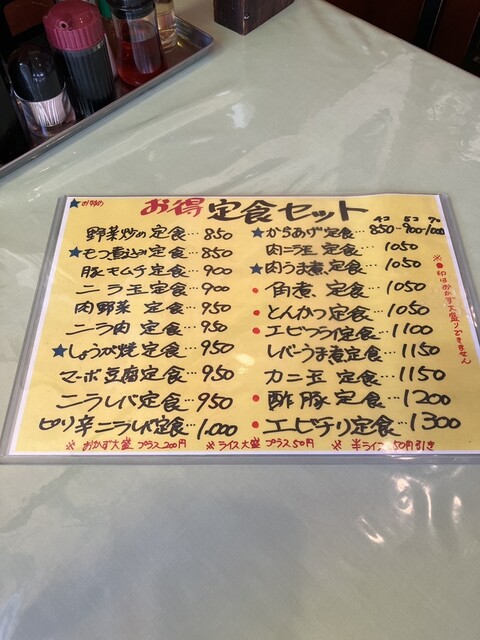 ★お勧め
お得 定食セット
野菜炒め定食…850
★モツ煮込み定食…850
豚キムチ定食…900
ニラ玉定食…900
肉野菜定食…950
ニラ肉定食…950
★しょうが焼定食…950
マーボ豆腐定食…950
ニラレバ定食…950
ピリ辛ニラレバ定食…1,000
4コ 5コ 7コ
★からあげ定食…850-900-1000
肉ニラ玉定食…1050
★肉うま煮定食…1050
●角煮定食…1050
●とんかつ定食…1050
●エビフライ定食…1100
レバーうま煮定食…1150
カニ玉定食…1150
●酢豚定食…1200
●エビチリ定食…1300
※●印はおかず大盛りできません
※おかず大盛プラス200円 ※ライス大盛プラス50円 ※半ライス50円引き